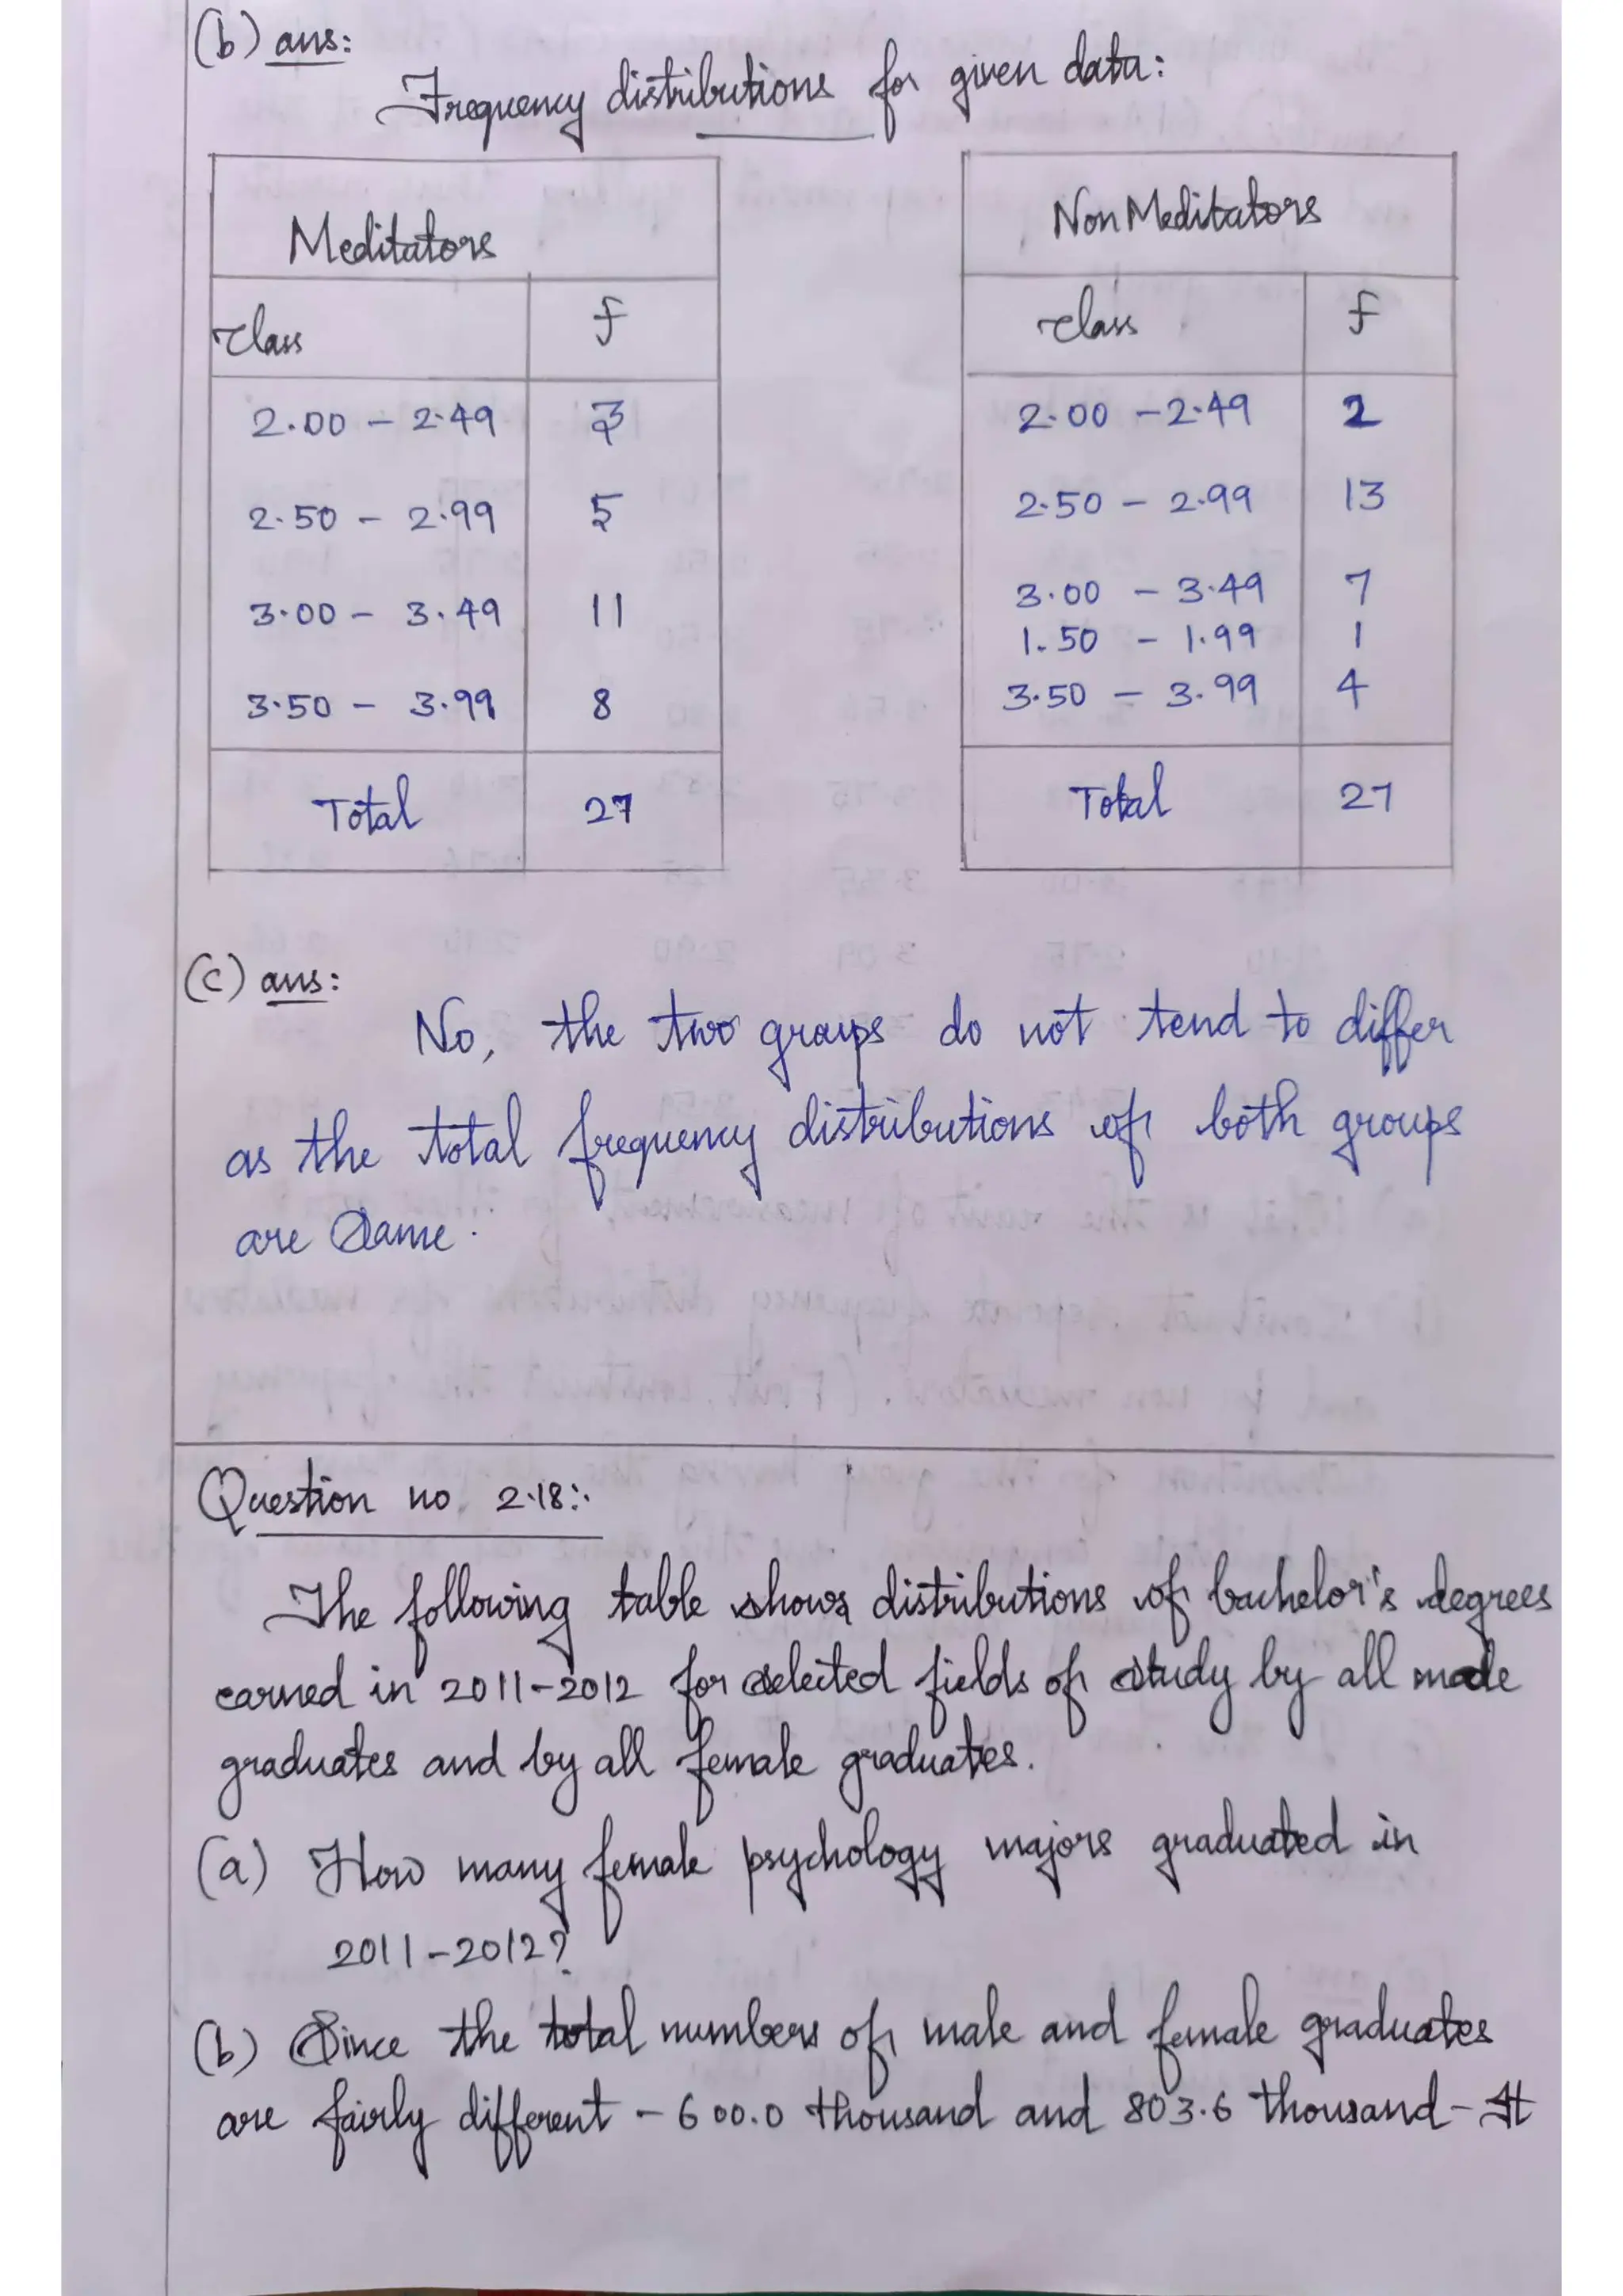 (b) ans:
Frequency distributions for given data:
Meditators
class f
2.00 - 2.49 3
2.50 - 2.99 5
3.00 - 3.49 11
3.50 - 3.99 8
Total 27
Non Meditators
class f
2.00 - 2.49 2
2.50 - 2.99 13
3.00 - 3.49 7
1.50 - 1.99 1
3.50 - 3.99 4
Total 27
(c) ans:
No, the two groups do not tend to differ
as the total frequency distributions of both groups
are Same.
Question no. 2.18:
The following table shows distributions of bachelor's degrees
earned in 2011-2012 for selected fields of study by all male
graduates and by all female graduates.
(a) How many female psychology majors graduated in
2011-2012?
(b) Since the total numbers of male and female graduates
are fairly different - 600.0 thousand and 803.6 thousand - It